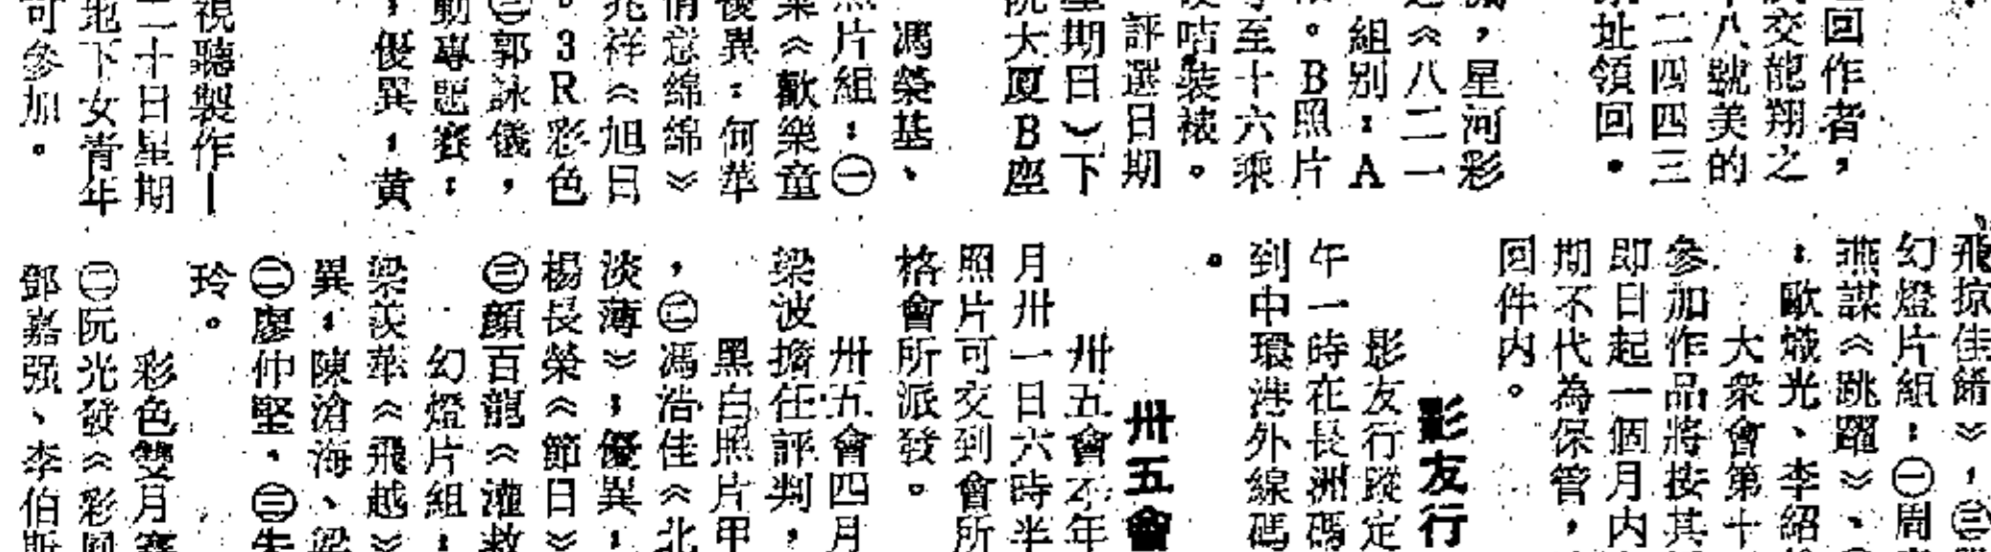 回作者，
交龍翔之
八號美的
二四四三
址領回。
，星河彩
《八二一
組别：A
。B照片
至十六乘
咭裝裱。
評選日期
期日）下
大廈B座
馮榮基、
片組：㊀
《歡樂童
異：何華
意綿綿》
祥《旭日
。3R彩色
㊂郭詠儀，
動專題賽：
優異：黃
視聽製作—
二十日星期
地下女青年
可參加。
飛掠佳餚》，㊂
幻燈片組：㊀周
燕謀《跳躍》、
：歐熾光、李紹
大衆會第十
參加作品將按其
即日起一個月内
期不代為保管，
回件内。
影友行
影友行蹤定
午一時在長洲碼
到中環港外線碼
。
卅五會
卅五會本年
月卅一日六時半
照片可交到會所
格會所派發。
卅五會四月
梁波擔任評判，
黑白照片甲
，㊁馮浩佳《北
淡薄》；優異：
楊長榮《節日》
㊂顏百龍《灌救
幻燈片組：
梁羨華《飛越》
異：陳滄海、梁
㊁廖仲堅，㊂朱
玲。
彩色雙月賽
㊁阮光發《彩
鄧嘉强、李伯